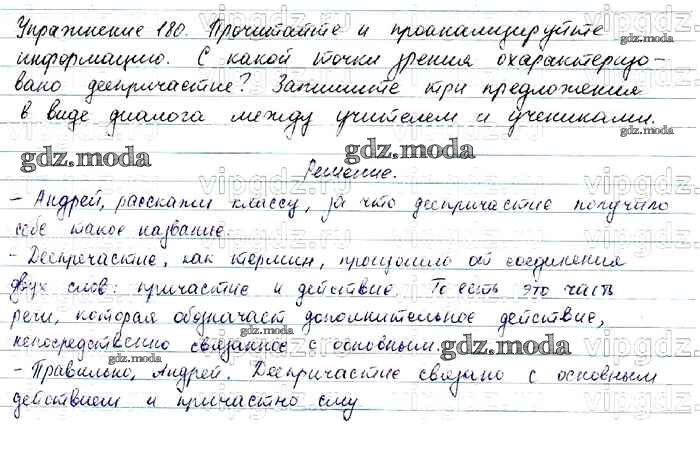 Упражнение 180. Прочитайте и проанализируйте
информацию. С какой точки зрения охарактеризо-
вано деепричастие? Запишите три предложения
в виде диалога между учителем и учениками.
gdz.moda gdz.moda gdz.moda
Решение.
- Андрей, расскажи классу, за что деепричастие получило
себе такое название.
- Деепричастие, как термин, произошло от соединения
двух слов: причастие и действие. То есть это часть
речи, которая обозначает дополнительное действие,
непосредственно связанное с основным.
gdz.moda gdz.moda gdz.moda
- Правильно, Андрей. Деепричастие связано с основным
действием и причастно ему